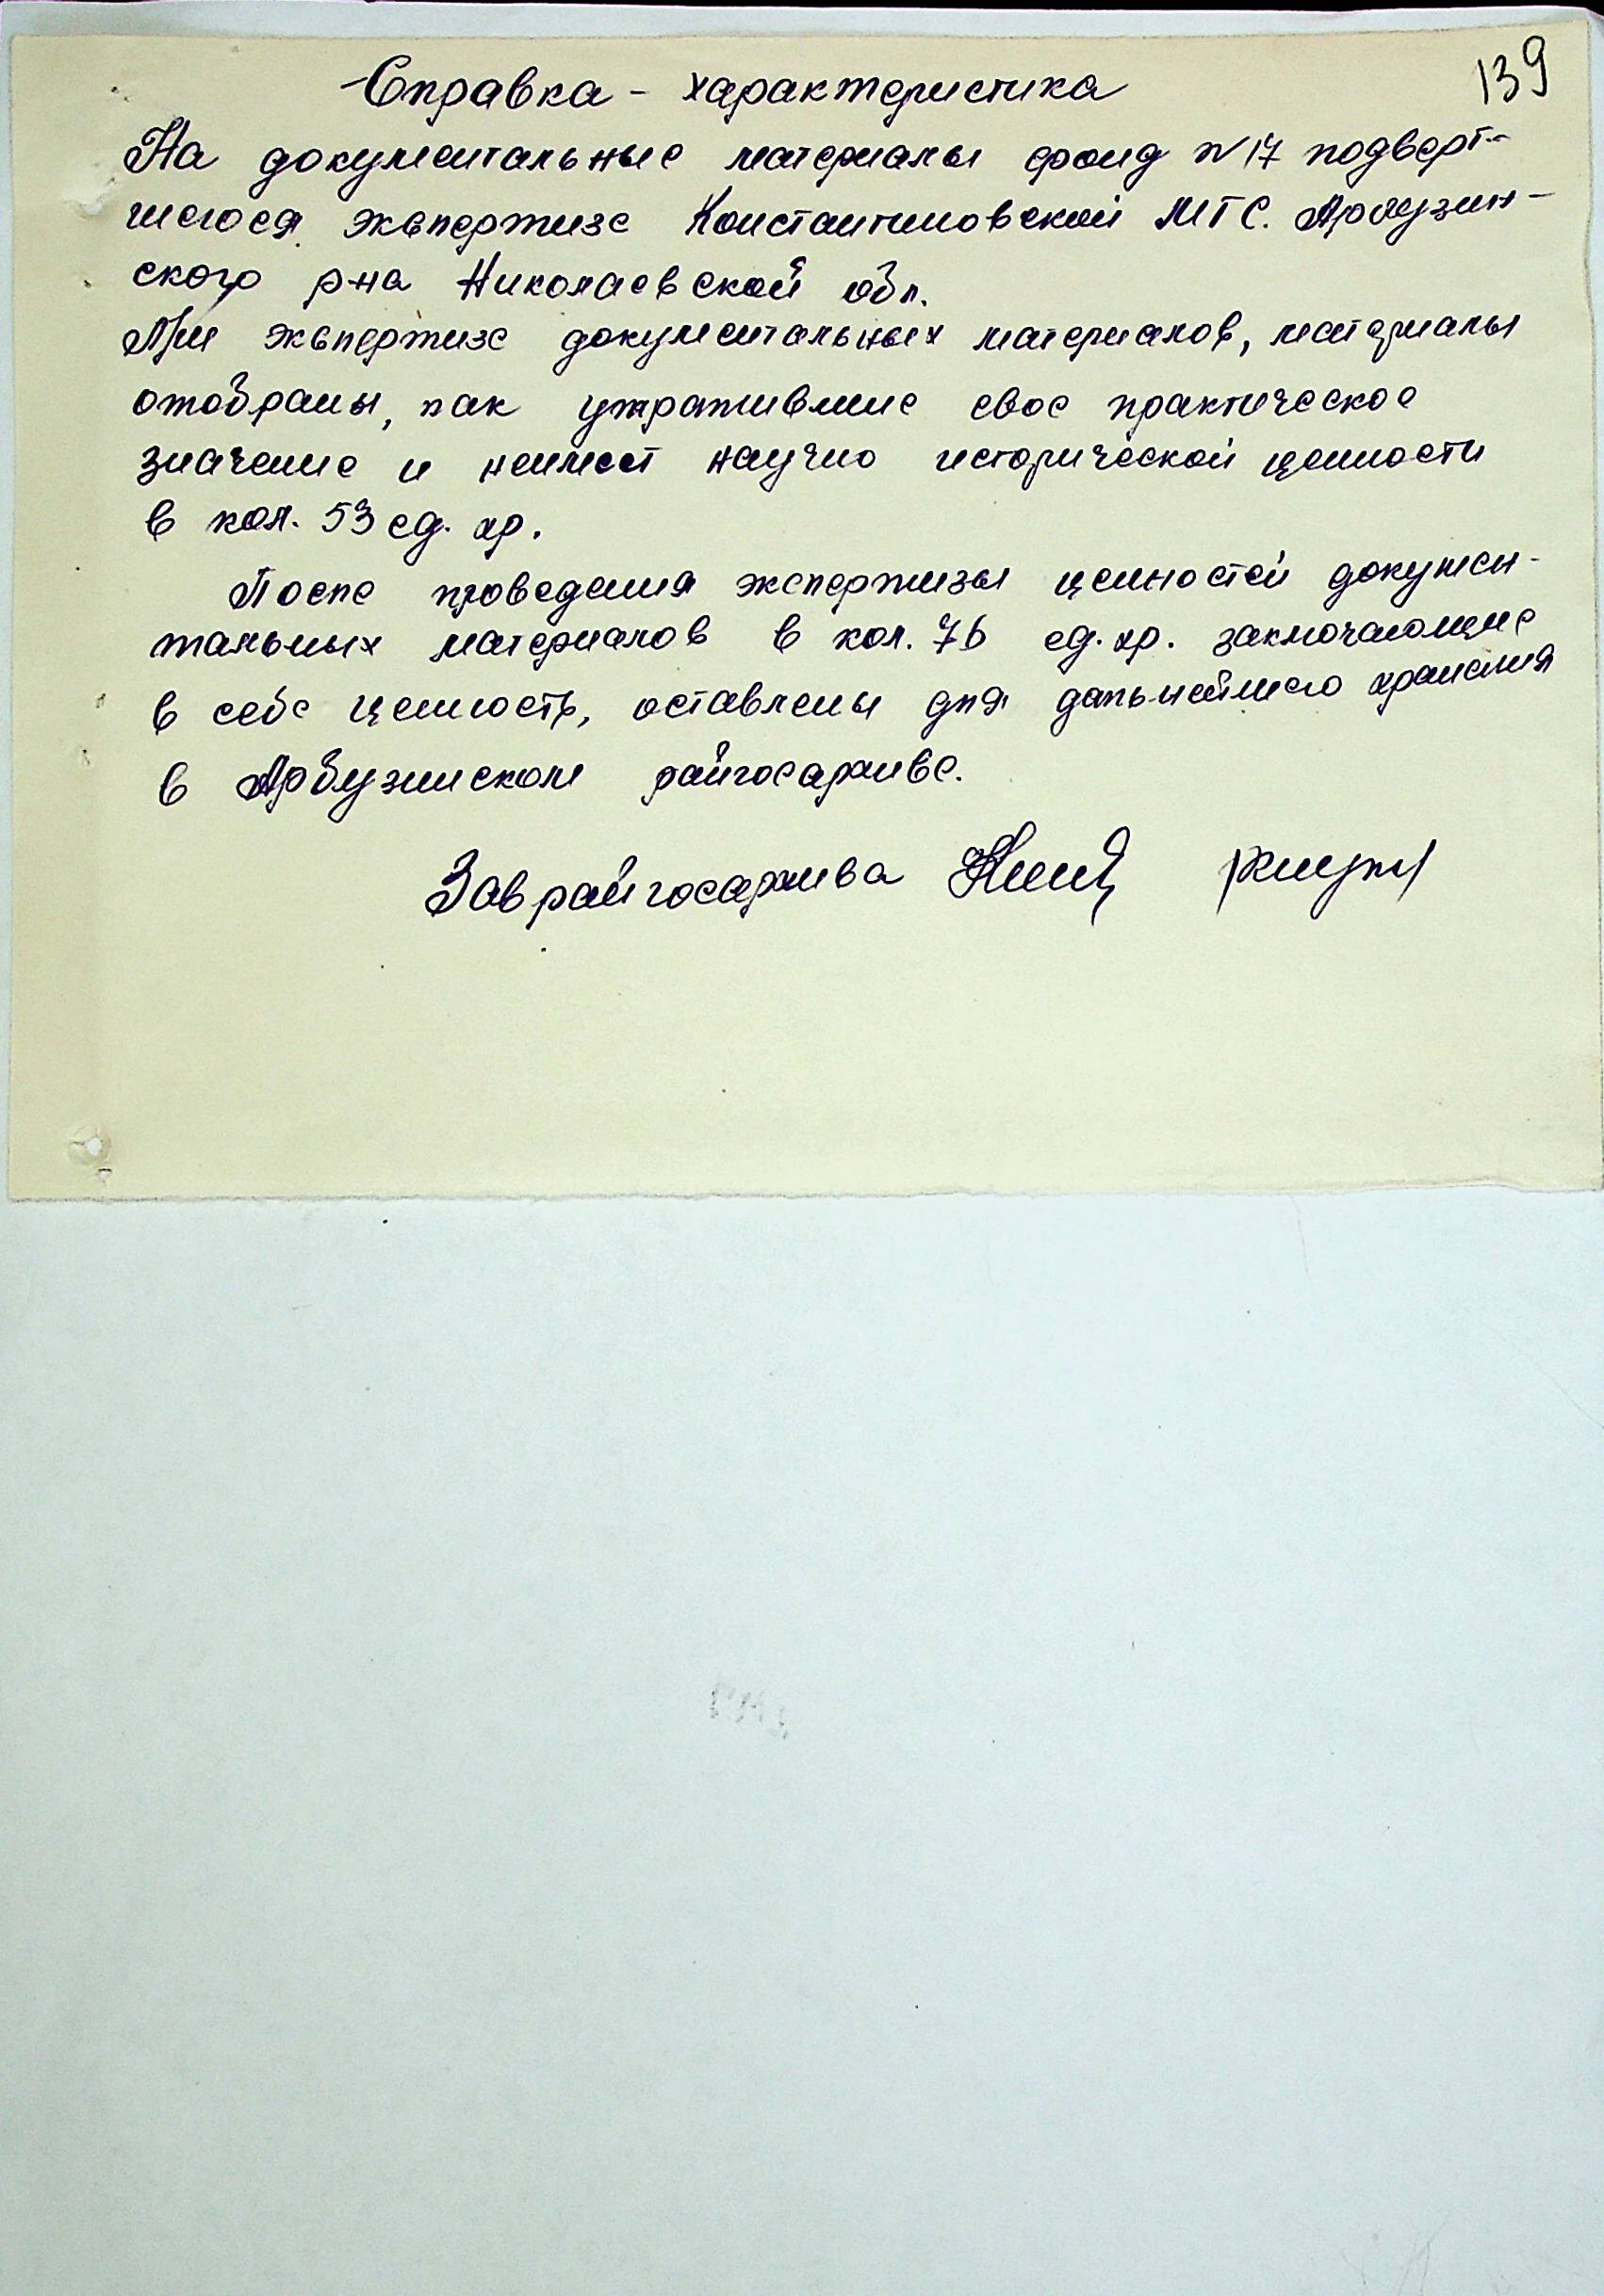 139
Справка - характеристика
На документальные материалы фонд №17 подверг-
шегося экспертизе Константиновской МТС. Арбузин-
ского р-на Николаевской обл.
При экспертизе документальных материалов, материалы
отобраны, как утратившие свое практическое
значение и неимеет научно исторической ценности
в кол. 53 ед. хр.
После проведения экспертизы ценностей докумен-
тальных материалов в кол. 76 ед. хр. заключающие
в себе ценность, оставлены для дальнейшего хранения
в Арбузинском райгосархиве.
Зав райгосархива